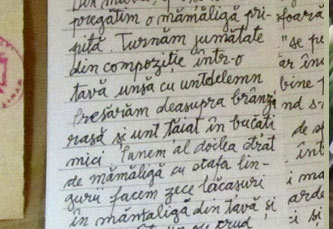 pregătim o mămăligă pri-
pită. Turnăm jumătate
din compoziție într-o
tavă unsă cu untdelemn
Presărăm deasupra brânză
rasă și unt tăiat în bucăți
mici. Punem al doilea strat
de mămăligă cu ceafa lin-
gurii facem zece lăcașuri
în mămăliga din tavă și
foară
"se pu
ar în
bine
nd s
de s
înt
i ma
ard
ci și